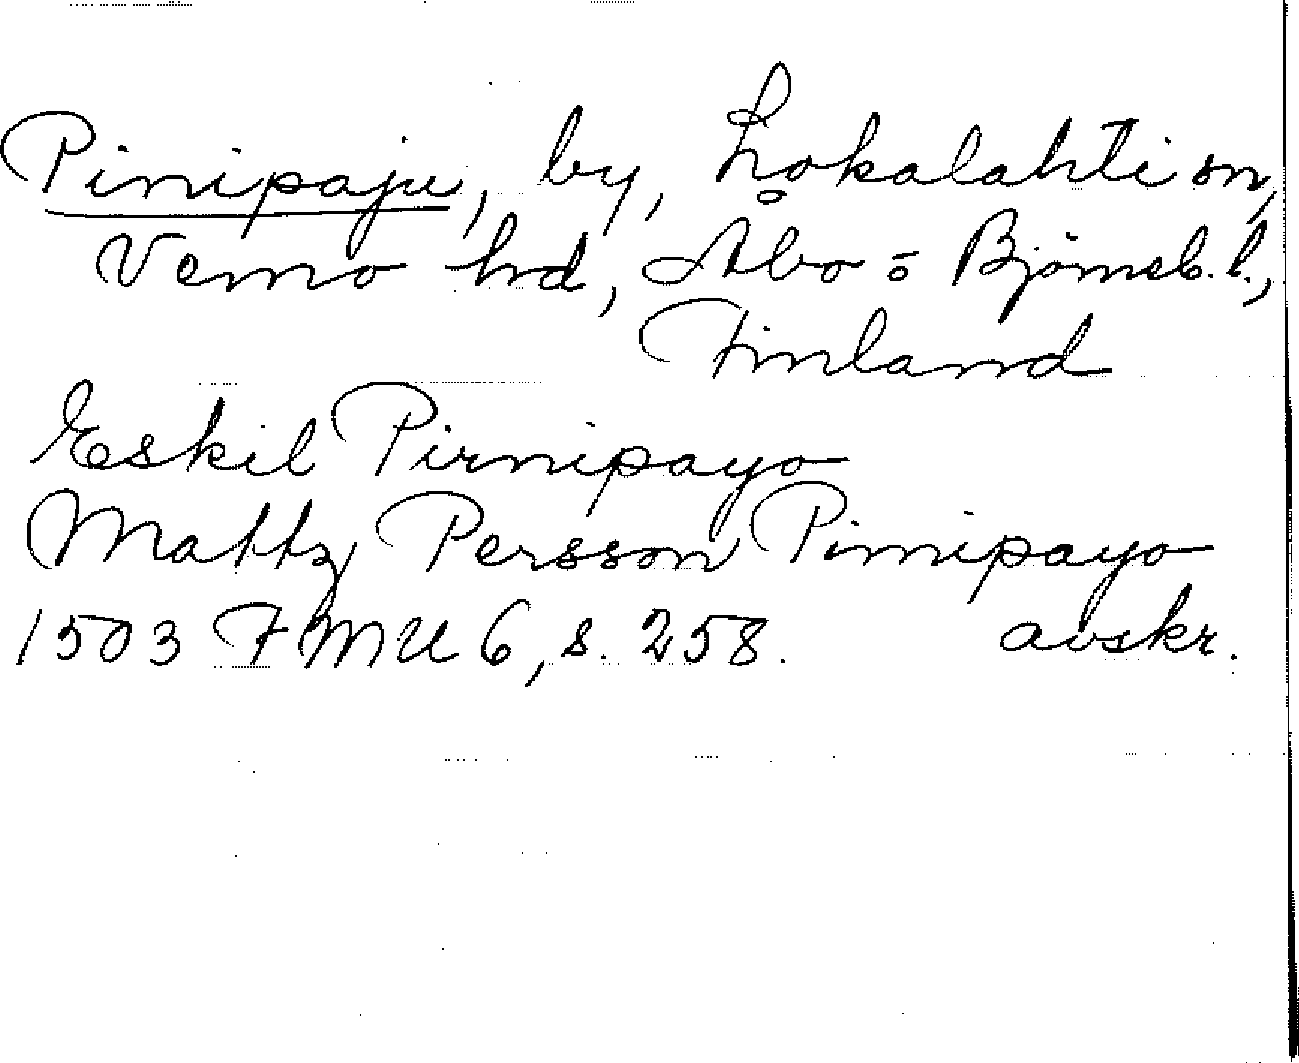 Pirnipaju, by, Lokalahti sn,
Vemo hd, Åbo ō Björneb. l.,
Finland
Eskil Pirnipayo
Mattz Persson Pirnipayo
1503 FMU 6, s. 258. avskr.